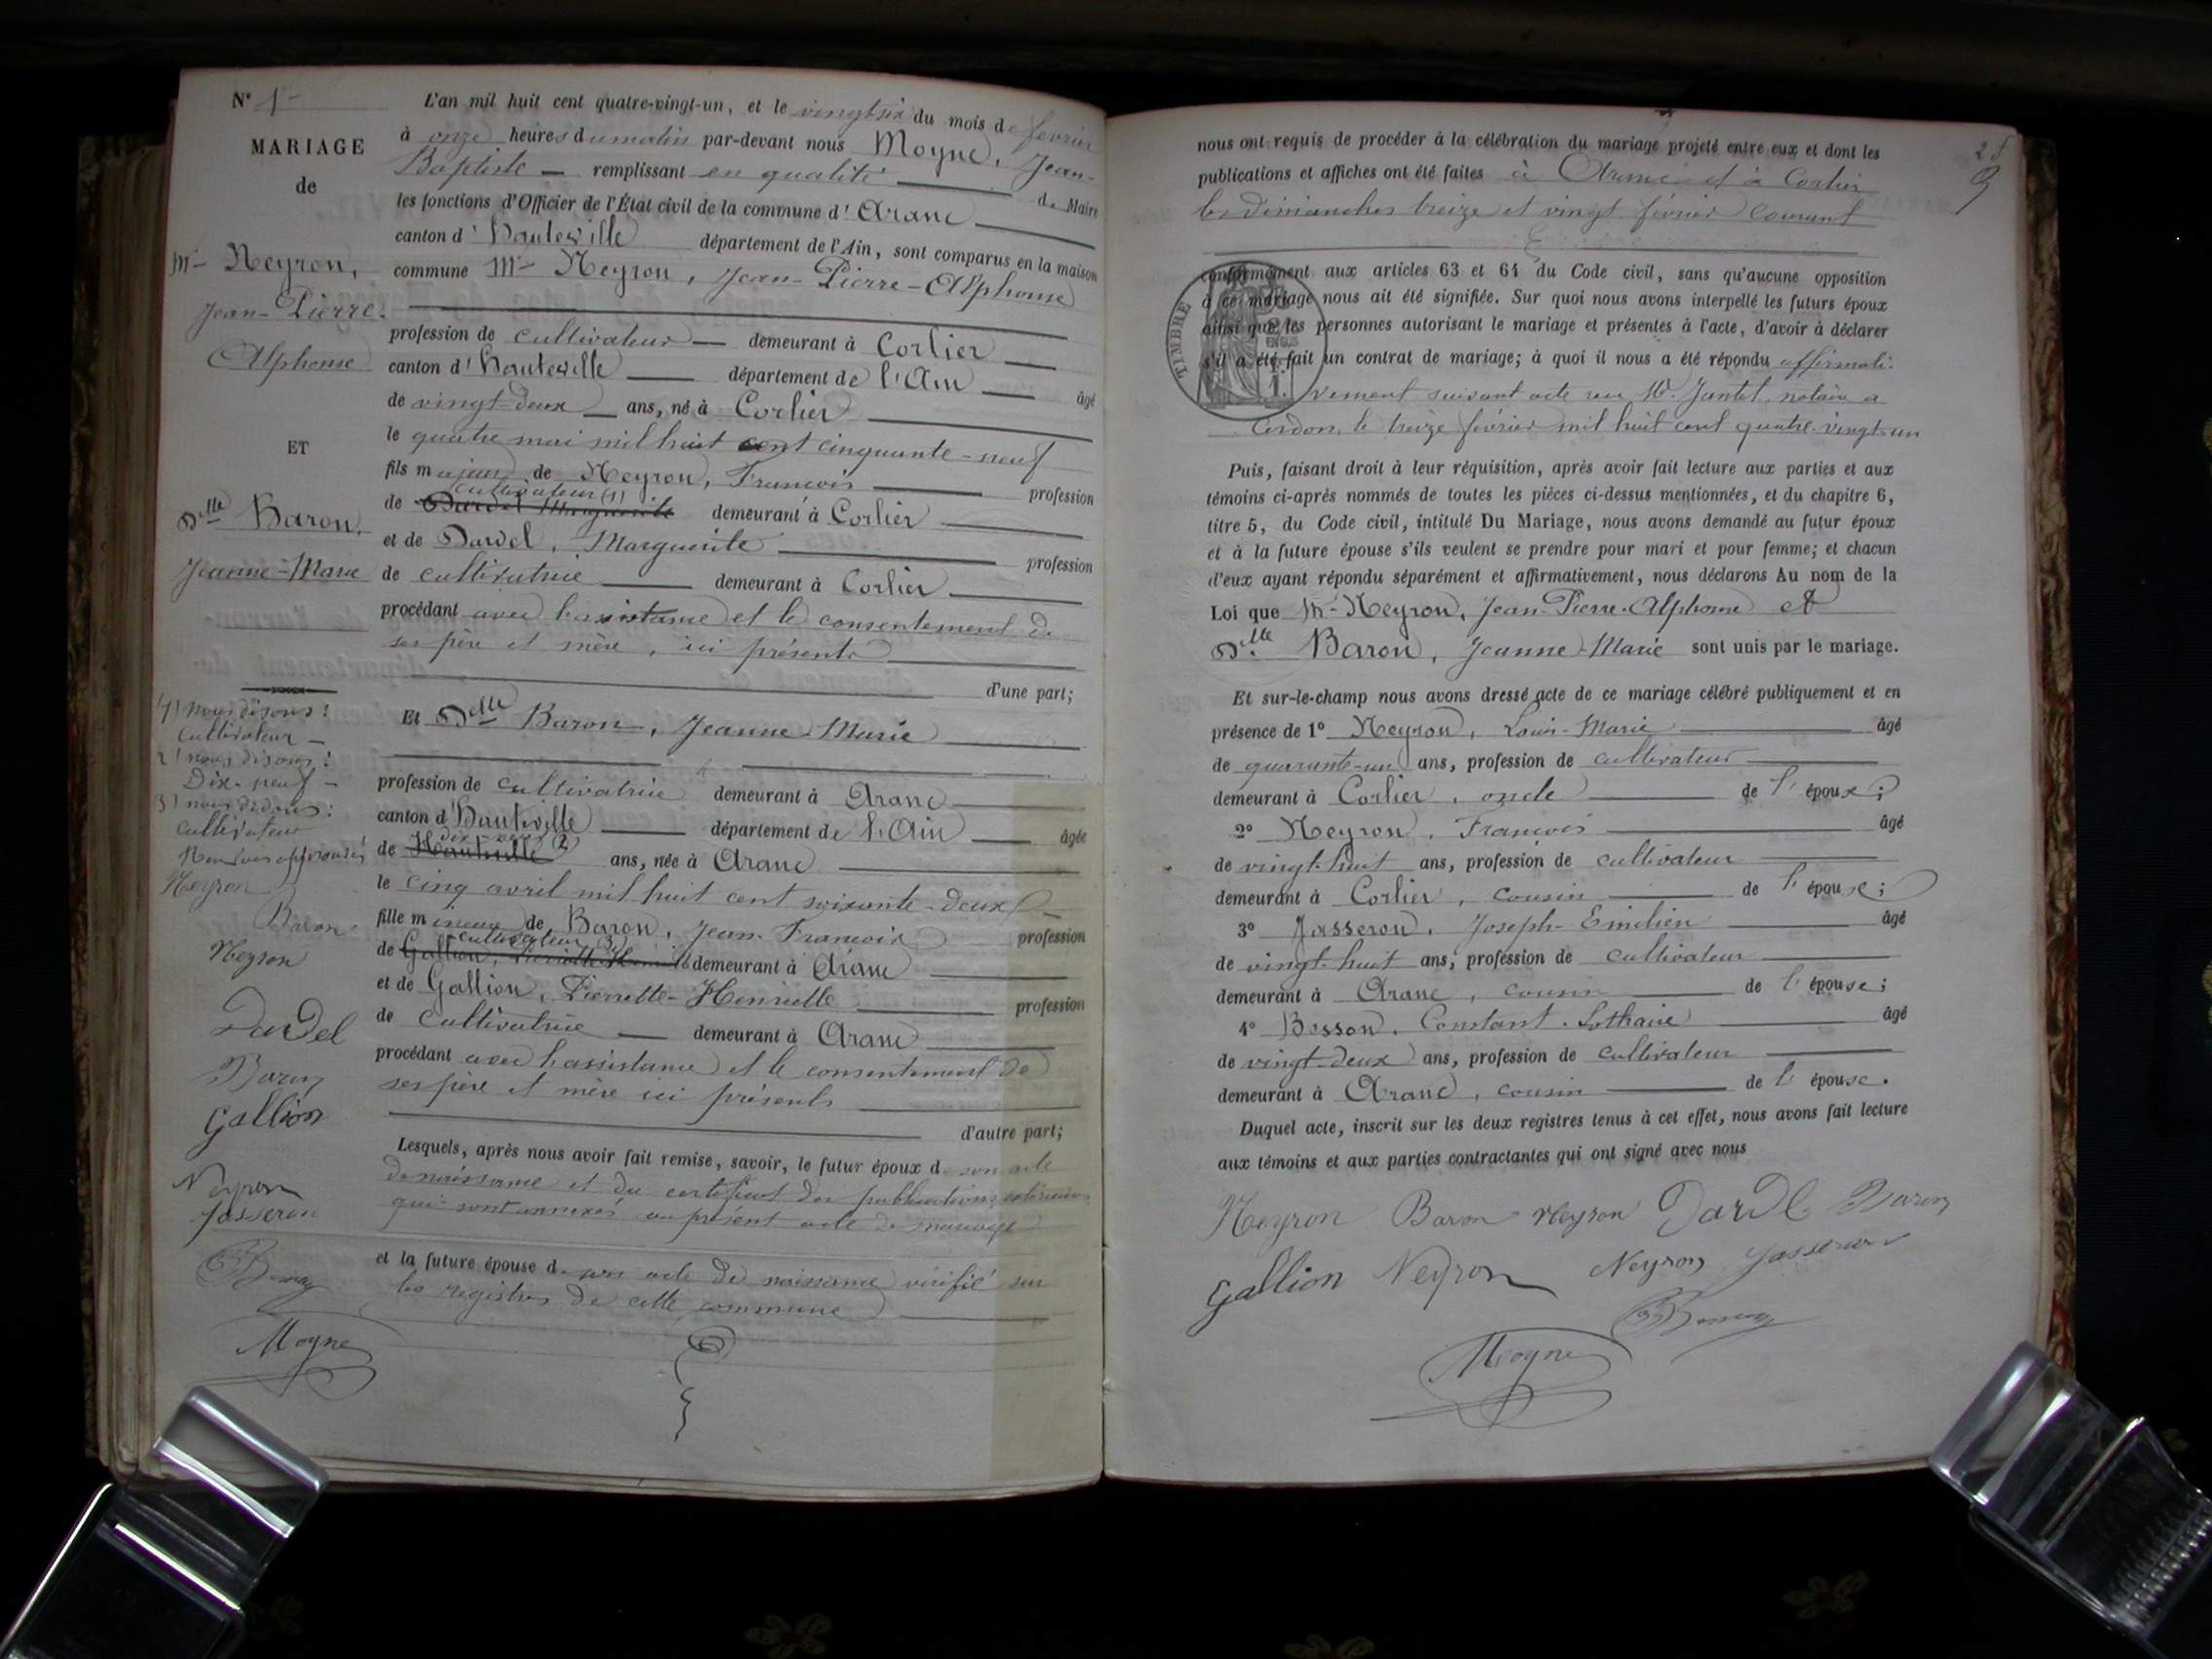 N° 1
MARIAGE
de
Mr Neyron,
Jean-Pierre-
Alphonse
ET
Delle Baron,
Jeanne-Marie
(1) nous disons :
Cultivateur —
2) nous disons :
Dix-neuf —
3) nous disons :
cultivateur
Renvois approuvés
Neyron
Baron
Neyron
Dardel
Baron
Gallion
Neyron
Josseron
Moyne
L'an mil huit cent quatre-vingt-un, et le vingt six du mois de février
à onze heures du matin par-devant nous Moyne, Jean-
Baptiste — remplissant en qualité de Maire
les fonctions d'Officier de l'État civil de la commune d'Aranc
canton d'Hauteville département de l'Ain, sont comparus en la maison
commune Mr Neyron, Jean-Pierre-Alphonse
profession de cultivateur — demeurant à Corlier
canton d'Hauteville département de l'Ain âgé
de vingt-deux ans, né à Corlier
le quatre mai mil huit cent cinquante-neuf
fils majeur de Neyron, François profession
cultivateur (1)
de Dardel Marguerite demeurant à Corlier
et de Dardel, Marguerite profession
de cultivatrice demeurant à Corlier
procédant avec l'assistance et le consentement de
ses père et mère, ici présents
d'une part;
Et Delle Baron, Jeanne-Marie
profession de cultivatrice demeurant à Aranc
canton d'Hauteville département de l'Ain âgée
dix-neuf (2)
de Hauteville ans, née à Aranc
le cinq avril mil huit cent soixante-deux
fille mineure de Baron, Jean-François profession
cultivateur (3)
de Gallion, Pierrette-Henriette demeurant à Aranc
et de Gallion, Pierrette-Henriette profession
de cultivatrice demeurant à Aranc
procédant avec l'assistance et le consentement de
ses père et mère ici présents
d'autre part;
Lesquels, après nous avoir fait remise, savoir, le futur époux de son acte
de naissance et du certificat des publications
qui sont annexés au présent acte de mariage
et la future épouse de son acte de naissance vérifié sur
les registres de cette commune
28
9
nous ont requis de procéder à la célébration du mariage projeté entre eux et dont les
publications et affiches ont été faites à Aranc et à Corlier
les dimanches treize et vingt février courant
TIMBRE
conformément aux articles 63 et 64 du Code civil, sans qu'aucune opposition
à ce mariage nous ait été signifiée. Sur quoi nous avons interpellé les futurs époux
ainsi que les personnes autorisant le mariage et présentes à l'acte, d'avoir à déclarer
s'il a été fait un contrat de mariage; à quoi il nous a été répondu affirmati-
vement suivant acte reçu Me Jantet, notaire à
Cerdon, le treize février mil huit cent quatre-vingt-un
Puis, faisant droit à leur réquisition, après avoir fait lecture aux parties et aux
témoins ci-après nommés de toutes les pièces ci-dessus mentionnées, et du chapitre 6,
titre 5, du Code civil, intitulé Du Mariage, nous avons demandé au futur époux
et à la future épouse s'ils veulent se prendre pour mari et pour femme; et chacun
d'eux ayant répondu séparément et affirmativement, nous déclarons Au nom de la
Loi que Mr Neyron, Jean-Pierre-Alphonse et
Delle Baron, Jeanne-Marie sont unis par le mariage.
Et sur-le-champ nous avons dressé acte de ce mariage célébré publiquement et en
présence de 1° Neyron, Louis-Marie âgé
de quarante-un ans, profession de cultivateur
demeurant à Corlier, oncle de l'époux;
2° Neyron, François âgé
de vingt-huit ans, profession de cultivateur
demeurant à Corlier, cousin de l'épouse;
3° Josseron, Joseph-Emilien âgé
de vingt-huit ans, profession de cultivateur
demeurant à Aranc, cousin de l'épouse;
4° Besson, Constant-Lothaire âgé
de vingt-deux ans, profession de cultivateur
demeurant à Aranc, cousin de l'épouse.
Duquel acte, inscrit sur les deux registres tenus à cet effet, nous avons fait lecture
aux témoins et aux parties contractantes qui ont signé avec nous
Neyron Baron Neyron Dardel Baron
Gallion Neyron Neyron Josseron
Moyne